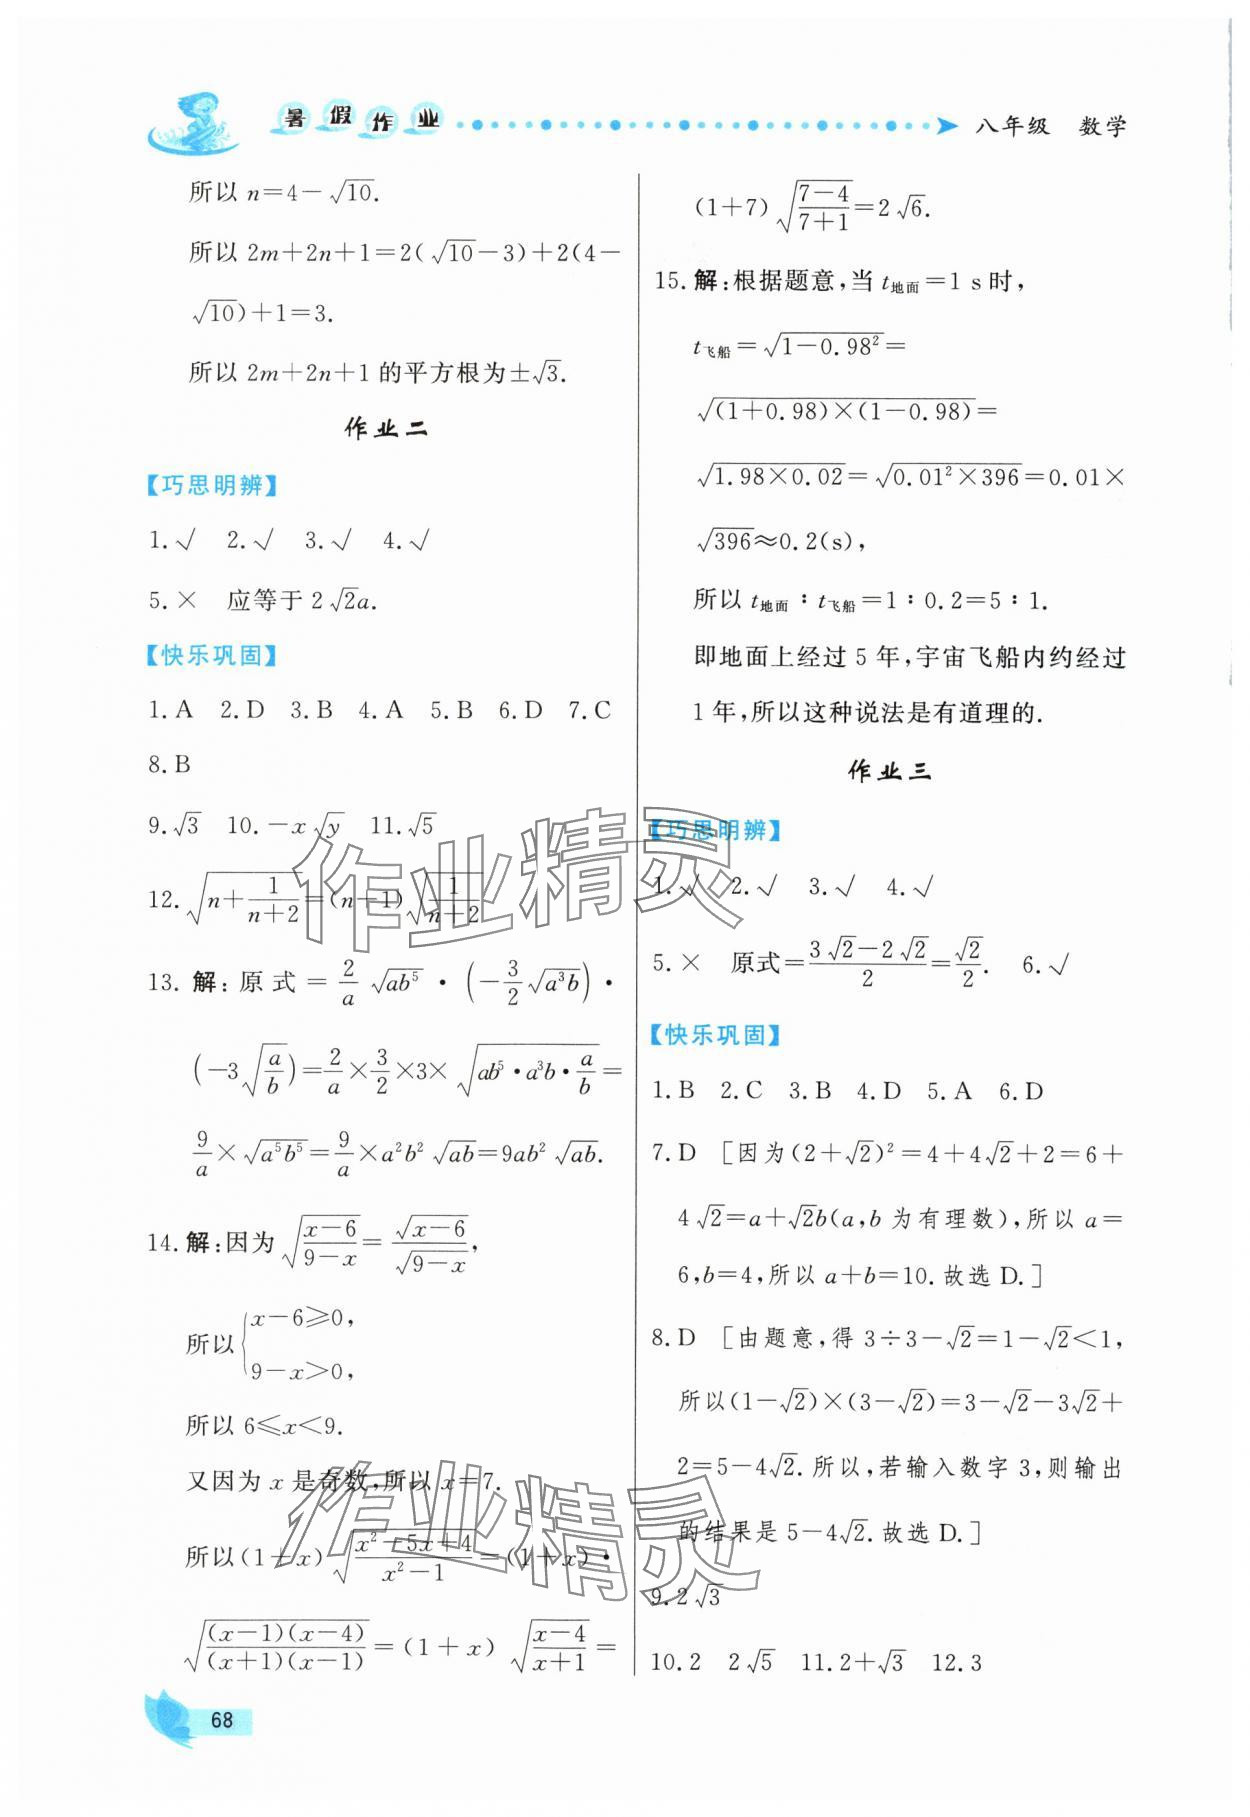 暑假作业 八年级 数学
所以 n=4-√10.
所以 2m+2n+1=2(√10-3)+2(4-
√10)+1=3.
所以 2m+2n+1 的平方根为±√3.
作业二
【巧思明辨】
1.√ 2.√ 3.√ 4.√
5.× 应等于 2√2a.
【快乐巩固】
1.A 2.D 3.B 4.A 5.B 6.D 7.C
8.B
9.√3 10.-x√y 11.√5
12.√(n+1/(n+2))=(n+1)√(1/(n+2))
13.解:原式=2/a √(ab⁵)·(-3/2 √(a³b))·
(-3√(a/b))=2/a×3/2×3×√(ab⁵·a³b·a/b)=
9/a×√(a⁵b⁵)=9/a×a²b²√ab=9ab²√ab.
14.解:因为√((x-6)/(9-x))=√(x-6)/√(9-x),
所以{x-6≥0,
9-x>0,
所以 6≤x<9.
又因为 x 是奇数,所以 x=7.
所以(1+x)√((x²-5x+4)/(x²-1))=(1+x)·
√((x-1)(x-4)/(x+1)(x-1))=(1+x)√((x-4)/(x+1))=
(1+7)√((7-4)/(7+1))=2√6.
15.解:根据题意,当 t地面=1 s时,
t飞船=√(1-0.98²)=
√((1+0.98)×(1-0.98))=
√(1.98×0.02)=√(0.01²×396)=0.01×
√396≈0.2(s),
所以 t地面∶t飞船=1∶0.2=5∶1.
即地面上经过 5 年,宇宙飞船内约经过
1 年,所以这种说法是有道理的.
作业三
【巧思明辨】
1.√ 2.√ 3.√ 4.√
5.× 原式=(3√2-2√2)/2=√2/2. 6.√
【快乐巩固】
1.B 2.C 3.B 4.D 5.A 6.D
7.D [因为(2+√2)²=4+4√2+2=6+
4√2=a+√2b(a,b 为有理数),所以 a=
6,b=4,所以 a+b=10.故选 D.]
8.D [由题意,得 3÷3-√2=1-√2<1,
所以(1-√2)×(3-√2)=3-√2-3√2+
2=5-4√2.所以,若输入数字 3,则输出
的结果是 5-4√2.故选 D.]
9.2√3
10.2 2√5 11.2+√3 12.3
68
作业精灵
作业精灵